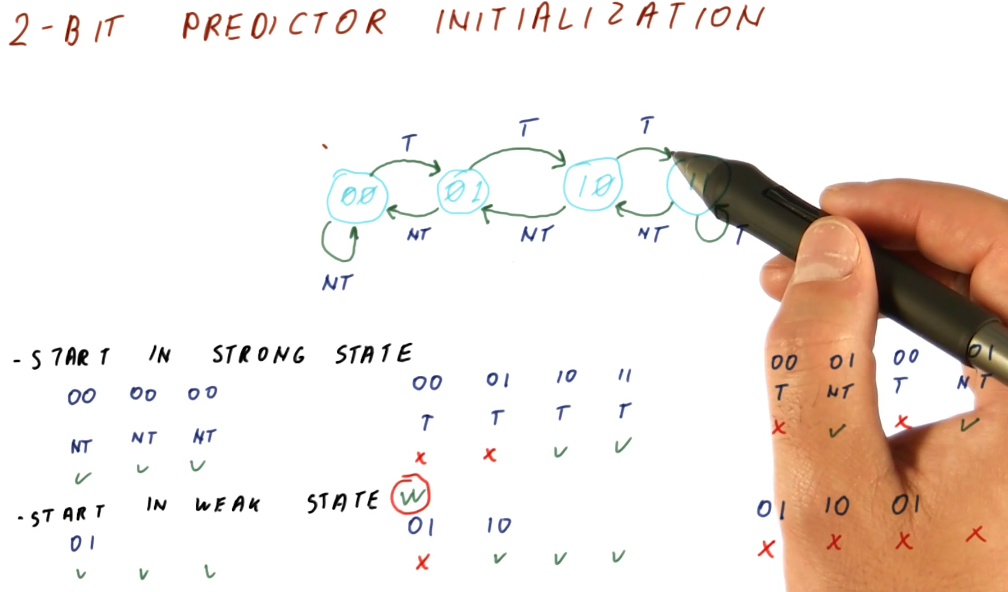 2-BIT PREDICTOR INITIALIZATION
T T T
00 01 10 11
NT NT NT T
NT
- START IN STRONG STATE
00 00 00 00 01 10 11 00 01 00 01
NT NT NT T T T T T NT T NT
✓ ✓ ✓ x x ✓ ✓ x ✓ x ✓
- START IN WEAK STATE W
01 01 10 01 10 01
✓ ✓ ✓ x ✓ ✓ ✓ x x x x